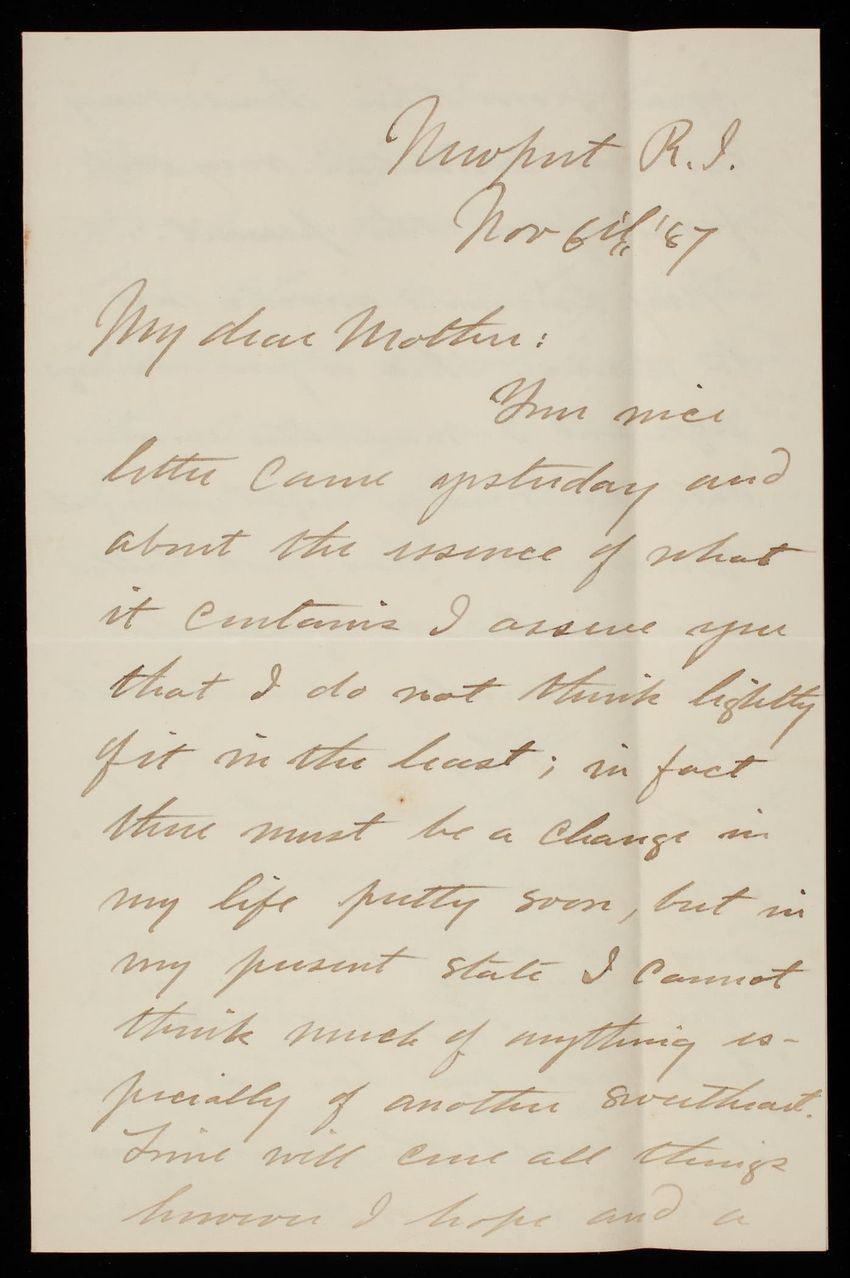 Newport R.I.
Nov 6th '87
My dear Mother:
Your nice
letter came yesterday and
about the essence of what
it contains I assure you
that I do not think lightly
of it in the least; in fact
there must be a change in
my life pretty soon, but in
my present state I cannot
think much of anything es-
pecially of another sweetheart.
Time will cure all things
however I hope and a